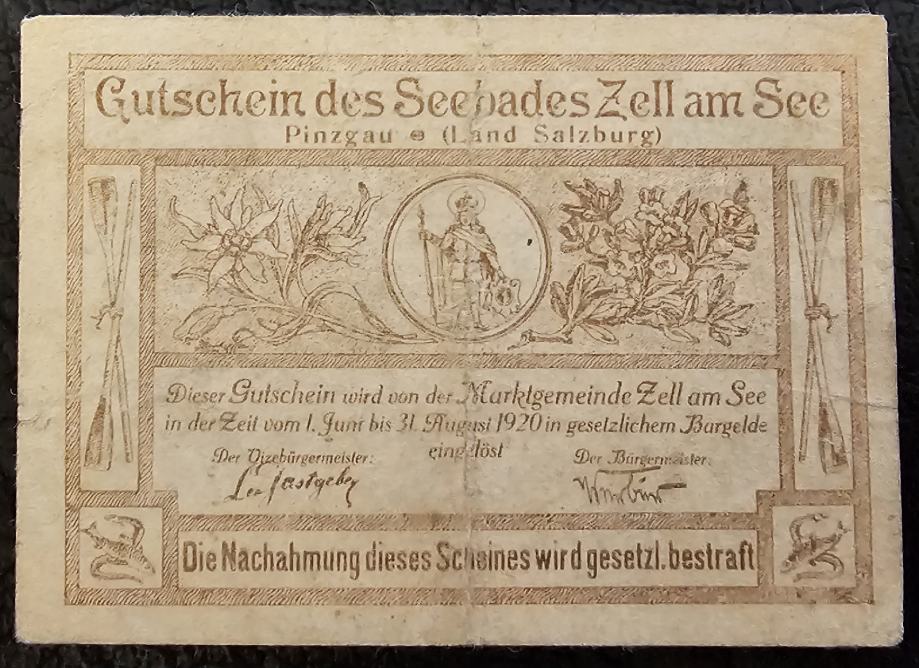 Gutschein des Seebades Zell am See
Pinzgau (Land Salzburg)
Dieser Gutschein wird von der Marktgemeinde Zell am See
in der Zeit vom 1. Juni bis 31. August 1920 in gesetzlichem Bargelde
eingelöst
Der Vizebürgermeister:
Der Bürgermeister:
Die Nachahmung dieses Scheines wird gesetzl. bestraft